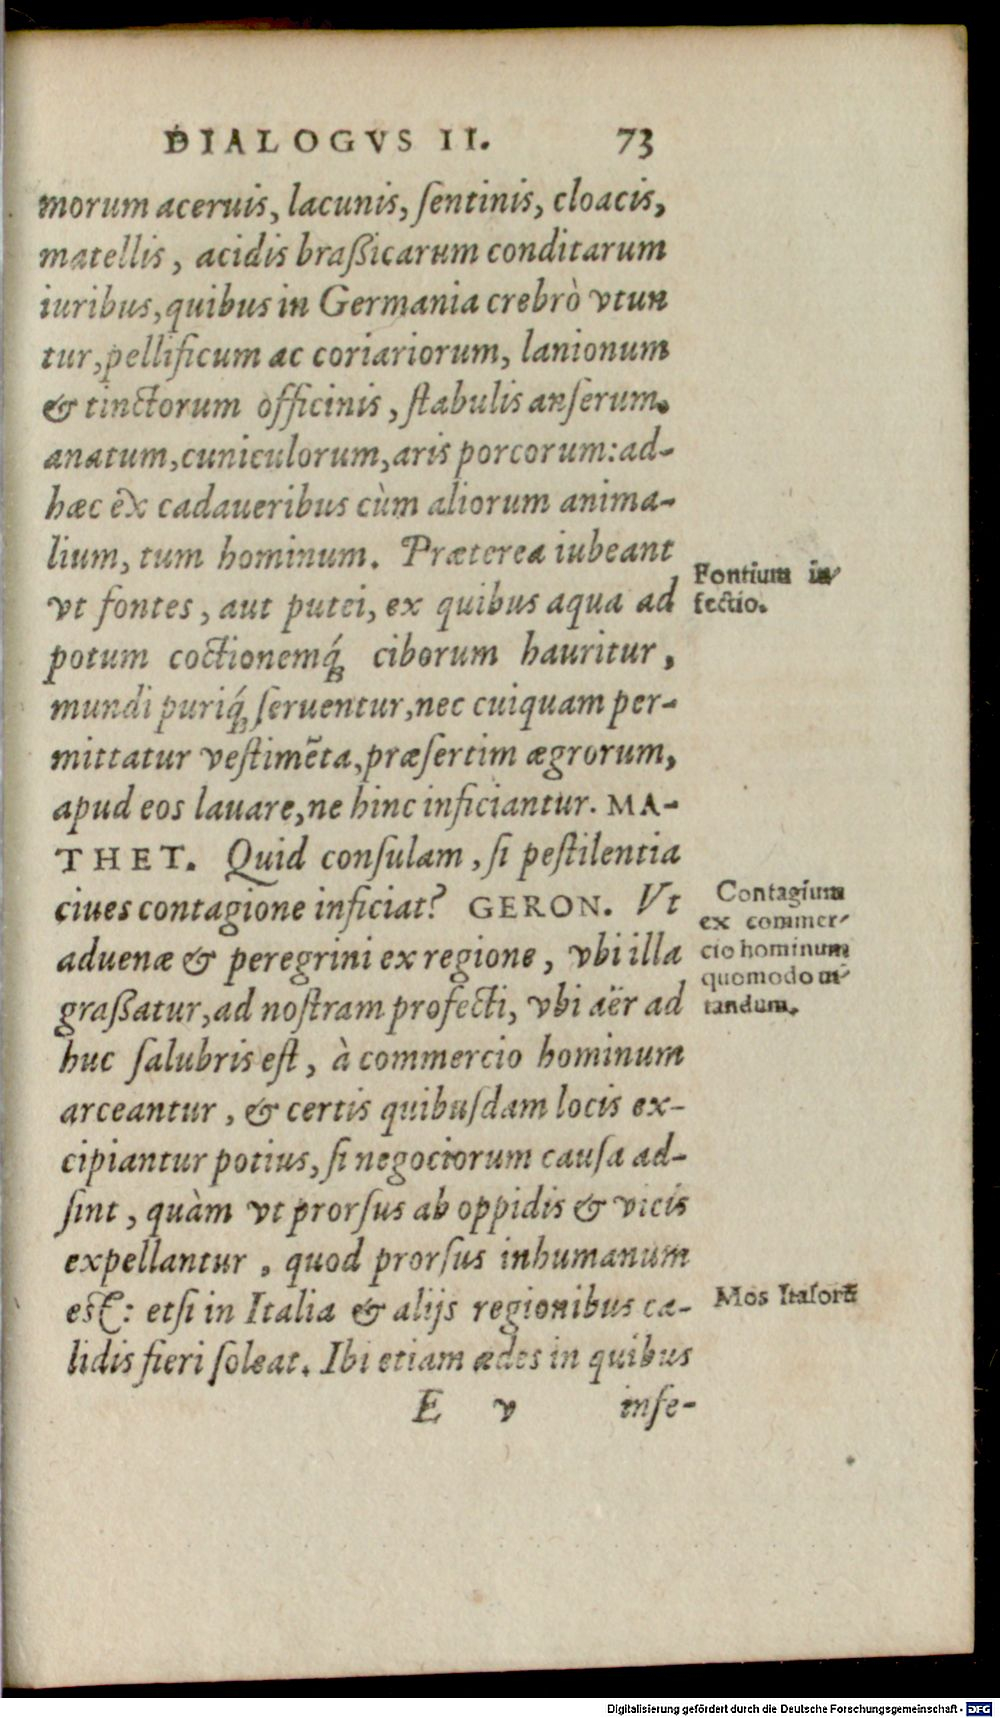 DIALOGVS II. 73
morum aceruis, lacunis, ſentinis, cloacis,
matellis, acidis braßicarum conditarum
iuribus, quibus in Germania crebrò vtun
tur, pellificum ac coriariorum, lanionum
& tinctorum officinis, ſtabulis anſerum.
anatum, cuniculorum, aris porcorum: ad-
hæc ex cadaueribus cùm aliorum anima-
lium, tum hominum. Præterea iubeant
vt fontes, aut putei, ex quibus aqua ad
potum coctionemq́; ciborum hauritur,
mundi puriq́; ſeruentur, nec cuiquam per-
mittatur veſtimẽta, præſertim ægrorum,
apud eos lauare, ne hinc inficiantur. MA-
THET. Quid conſulam, ſi peſtilentia
ciues contagione inficiat? GERON. Vt
aduenæ & peregrini ex regione, vbi illa
graßatur, ad noſtram profecti, vbi aër ad
huc ſalubris eſt, à commercio hominum
arceantur, & certis quibuſdam locis ex-
cipiantur potius, ſi negociorum cauſa ad-
ſint, quàm vt prorſus ab oppidis & vicis
expellantur, quod prorſus inhumanum
est: etſi in Italia & alijs regionibus ca-
lidis fieri ſoleat. Ibi etiam ædes in quibus
E v inſe-
Fontium in-
fectio.
Contagium
ex commer-
cio hominum
quomodo ui-
tandum.
Mos Italorũ
Digitalisierung gefördert durch die Deutsche Forschungsgemeinschaft - DFG